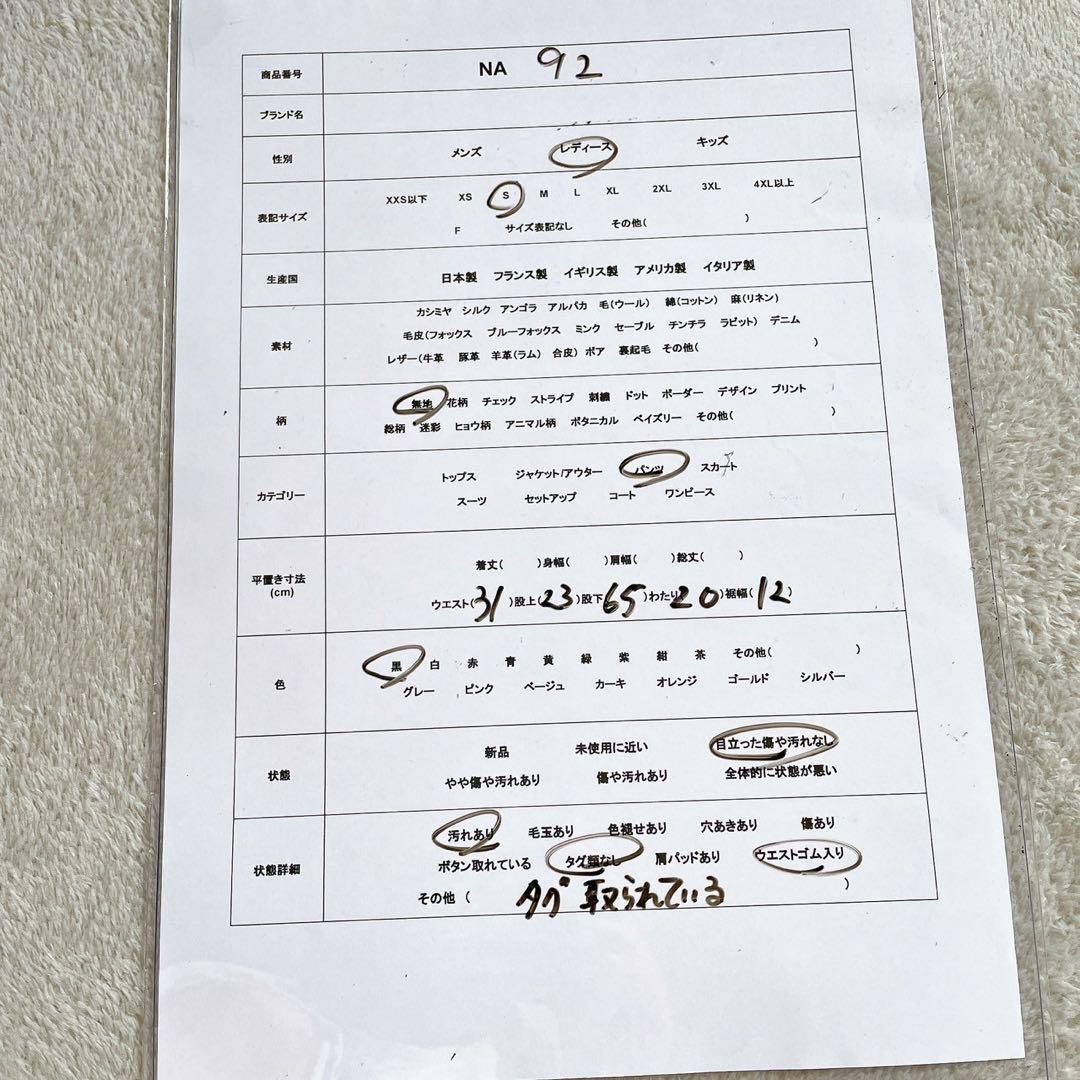 商品番号 NA 92
ブランド名
性別 メンズ レディース キッズ
XXS以下 XS S M L XL 2XL 3XL 4XL以上
表記サイズ
F サイズ表記なし その他( )
生産国 日本製 フランス製 イギリス製 アメリカ製 イタリア製
カシミヤ シルク アンゴラ アルパカ 毛(ウール) 綿(コットン) 麻(リネン)
毛皮(フォックス ブルーフォックス ミンク セーブル チンチラ ラビット) デニム
素材
レザー(牛革 豚革 羊革(ラム) 合皮) ボア 裏起毛 その他( )
無地 花柄 チェック ストライプ 刺繍 ドット ボーダー デザイン プリント
柄
総柄 迷彩 ヒョウ柄 アニマル柄 ボタニカル ペイズリー その他( )
トップス ジャケット/アウター パンツ スカート
カテゴリー
スーツ セットアップ コート ワンピース
着丈( )身幅( )肩幅( )総丈( )
平置き寸法
(cm)
ウエスト(31)股上(23)股下(65)わたり(20)裾幅(12)
黒 白 赤 青 黄 緑 紫 紺 茶 その他( )
色
グレー ピンク ベージュ カーキ オレンジ ゴールド シルバー
新品 未使用に近い 目立った傷や汚れなし
状態
やや傷や汚れあり 傷や汚れあり 全体的に状態が悪い
汚れあり 毛玉あり 色褪せあり 穴あきあり 傷あり
状態詳細
ボタン取れている タグ類なし 肩パッドあり ウエストゴム入り
その他 ( タグ取られている )